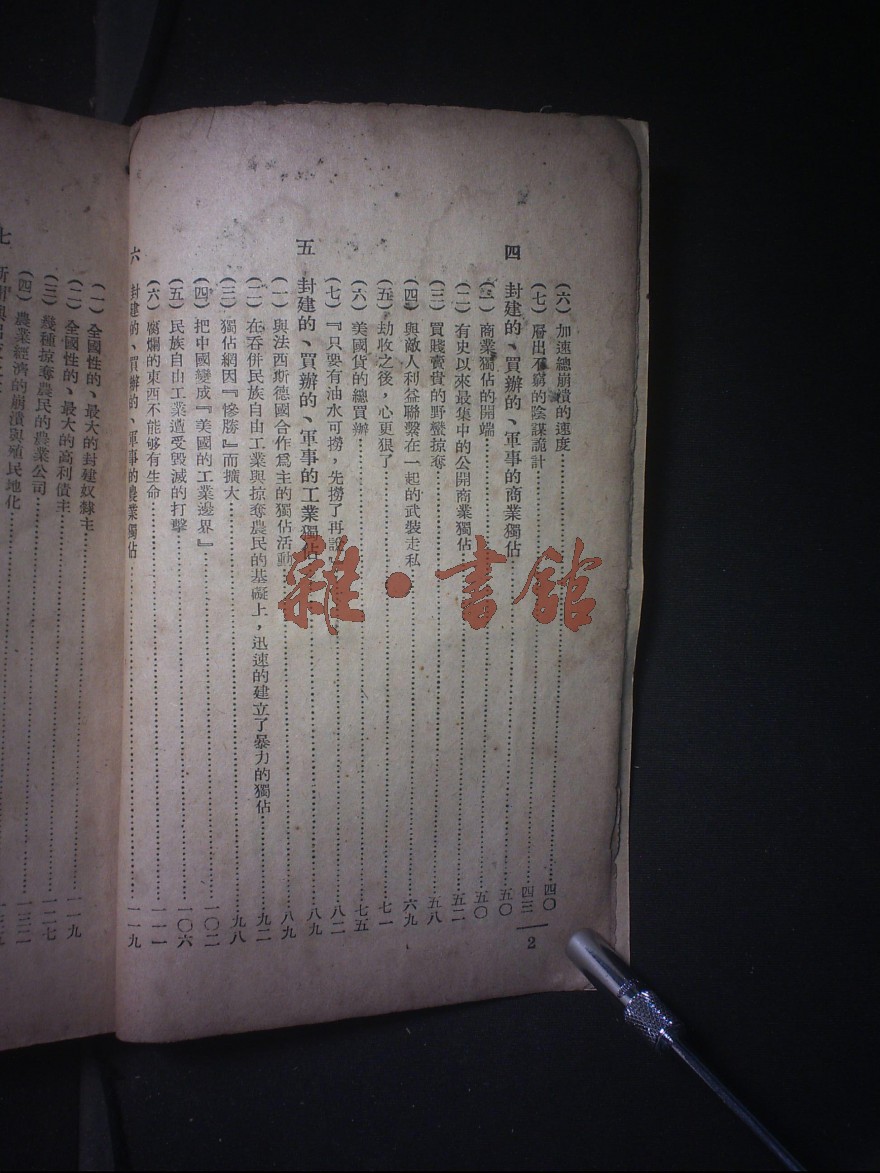 （六）加速總崩潰的速度……四〇
（七）層出不窮的陰謀詭計……四三
四　封建的、買辦的、軍事的商業獨佔……五〇
（一）商業獨佔的開端……五〇
（二）有史以來最集中的公開商業獨佔……五二
（三）買賤賣貴的野蠻掠奪……五八
（四）與敵人利益聯繫在一起的武裝走私……六九
（五）劫收之後，心更狠了……七一
（六）美國貨的總買辦……七五
（七）『只要有油水可撈，先撈了再說』……八二
五　封建的、買辦的、軍事的工業獨佔……八九
（一）與法西斯德國合作為主的獨佔活動……八九
（二）在吞併民族自由工業與掠奪農民的基礎上，迅速的建立了暴力的獨佔……九二
（三）獨佔網因『慘勝』而擴大……九八
（四）把中國變成『美國的工業邊界』……一〇二
（五）民族自由工業遭受毀滅的打擊……一〇六
（六）腐爛的東西不能够有生命……一一一
六　封建的、買辦的、軍事的農業獨佔……一一九
（一）全國性的、最大的封建奴隸主……一一九
（二）全國性的、最大的高利債主
（三）幾種掠奪農民的農業公司……一二七
（四）農業經濟的崩潰與殖民地化……一三二
七
2
雜·書館